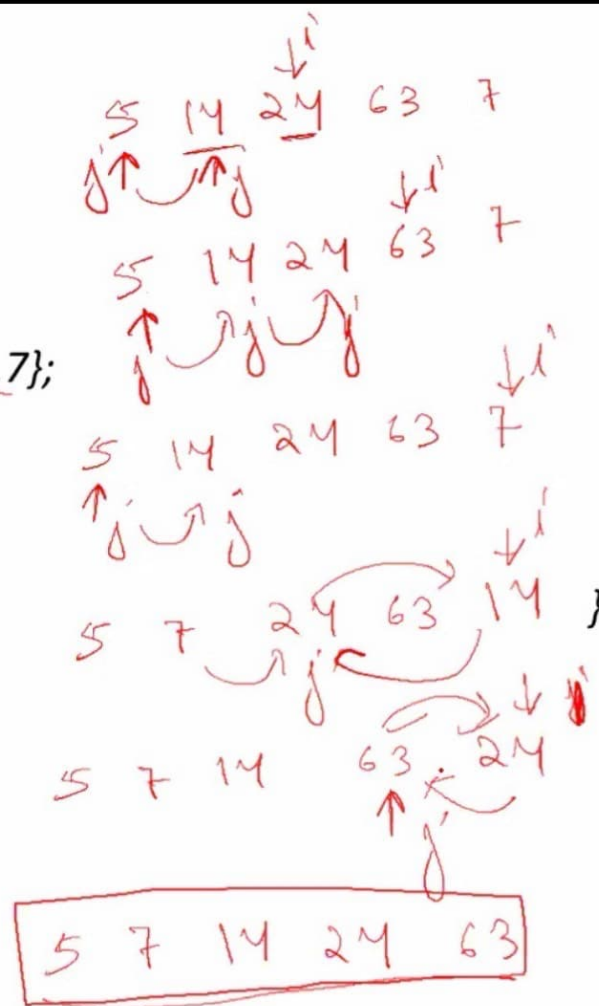 ↓i
5 14 24 63 7
j j
↓i
5 14 24 63 7
j j j
7};
↓i
5 14 24 63 7
j j
↓i
5 7 24 63 14
}
j
5 7 14 63 24
j
5 7 14 24 63